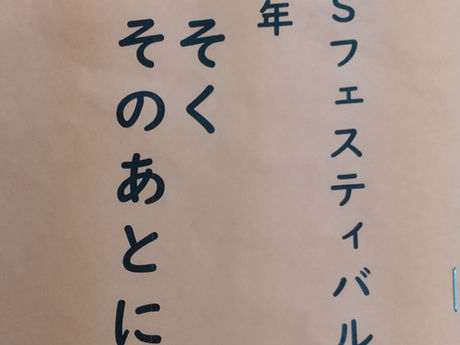 Sフェスティバル
年
そく
そのあとに